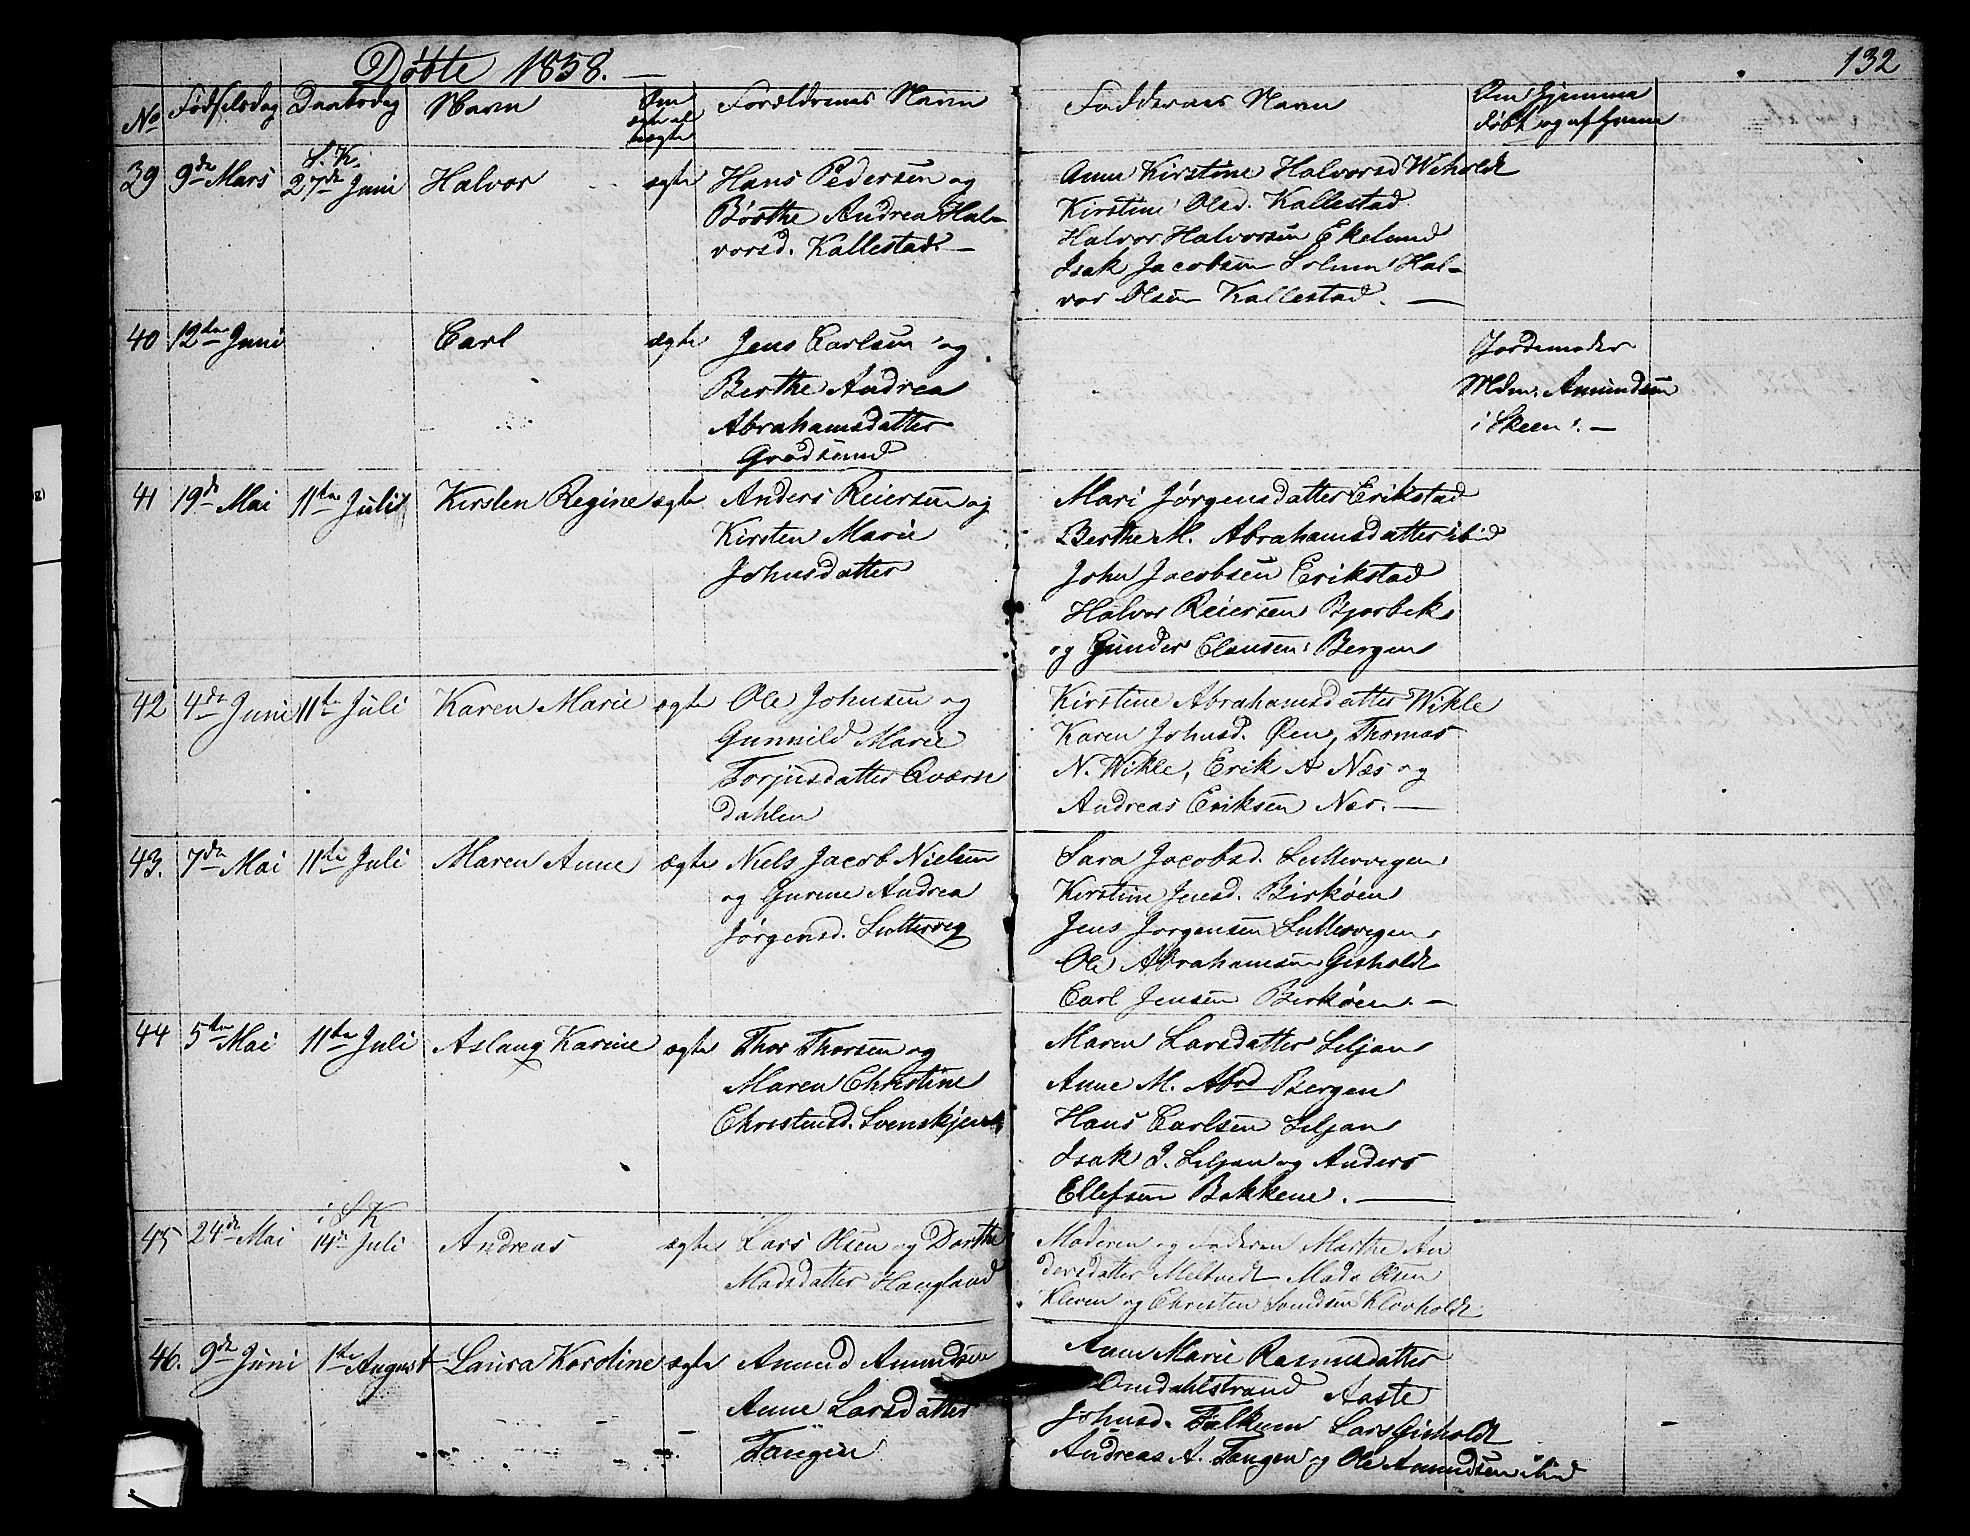 Døbte 1858.
132
No Fødselsdag Daabsdag Navn Om ægte el uægte Forældrenes Navn Faddernes Navn Om hjemme døbt og af hvem
39 9de Mars S. K. 27de Juni Halvor ægte Hans Pedersen og
Børthe Andrea Hal-
vorsd. Kallestad. —
Anne Kirstine Halvorsd Weholdt
Kirstine Olsd. Kallestad
Halvor Halvorsen Ekelund
Isak Jacobsen Solum Hal-
vor Olsen Kallestad. —
40 12te Juni Carl ægte Jens Carlsen og
Berthe Andrea
Abrahamsdatter
Jordemoder
Mdm: Amundsen
i Skeen. —
41 19de Mai 11te Juli Kirsten Regine ægte Anders Reiersen og
Kirsten Marie
Johnsdatter
Mari Jørgensdatter Erikstad
Berthe M. Abrahamsdatter ibid
John Jacobsen Erikstad
Halvor Reiersen Bjorbek
og Gunder Clausen Bergen
42 4de Juni 11te Juli Karen Marie ægte Ole Johnsen og
Gunnild Marie
Torjusdatter Qværn
dahlen
Kirstine Abrahamsdatter Wikle
Karen Johnsd. Øen, Thomas
N. Wikle, Erik A Næs og
Andreas Eriksen Næs. —
43. 7de Mai 11te Juli Maren Anne ægte Niels Jacob Nielsen
og Gurine Andrea
Jørgensd. Lutterveg
Sara Jacobsd. Luttervegen
Kirstine Jensd. Birkøen
Jens Jorgensen Luttervegen
Ole Abrahamsen Gisholdt
Carl Jensen Birkøen. —
44 5te Mai 11te Juli Aslaug Karine ægte Thor Thorsen og
Maren Christine
Christensd. Svenskjern
Maren Larsdatter Liljan
Anne M. Abrd Bergen
Hans Carlsen Liljan
Isak J. Liljan og Anders
Ellefsen Bakkene. —
45 24de Mai i S K 14de Juli Andreas ægte Lars Olsen og Dorthe
Madsdatter Haugland
Moderen og Faderen Marthe An
dersdatter Meltvedt Mads Olsen
Kleven og Christen Klovholdt
46. 9de Juni 1ste August Laura Karoline ægte Amund Amundsen
Anne Larsdatter
Tangen
Anne Marie Rasmusdatter
Omdahlstrand Aaste
Johnsd. Falkum Lars Gisholdt
Andreas A. Tangen og Ole Amundsen ibid